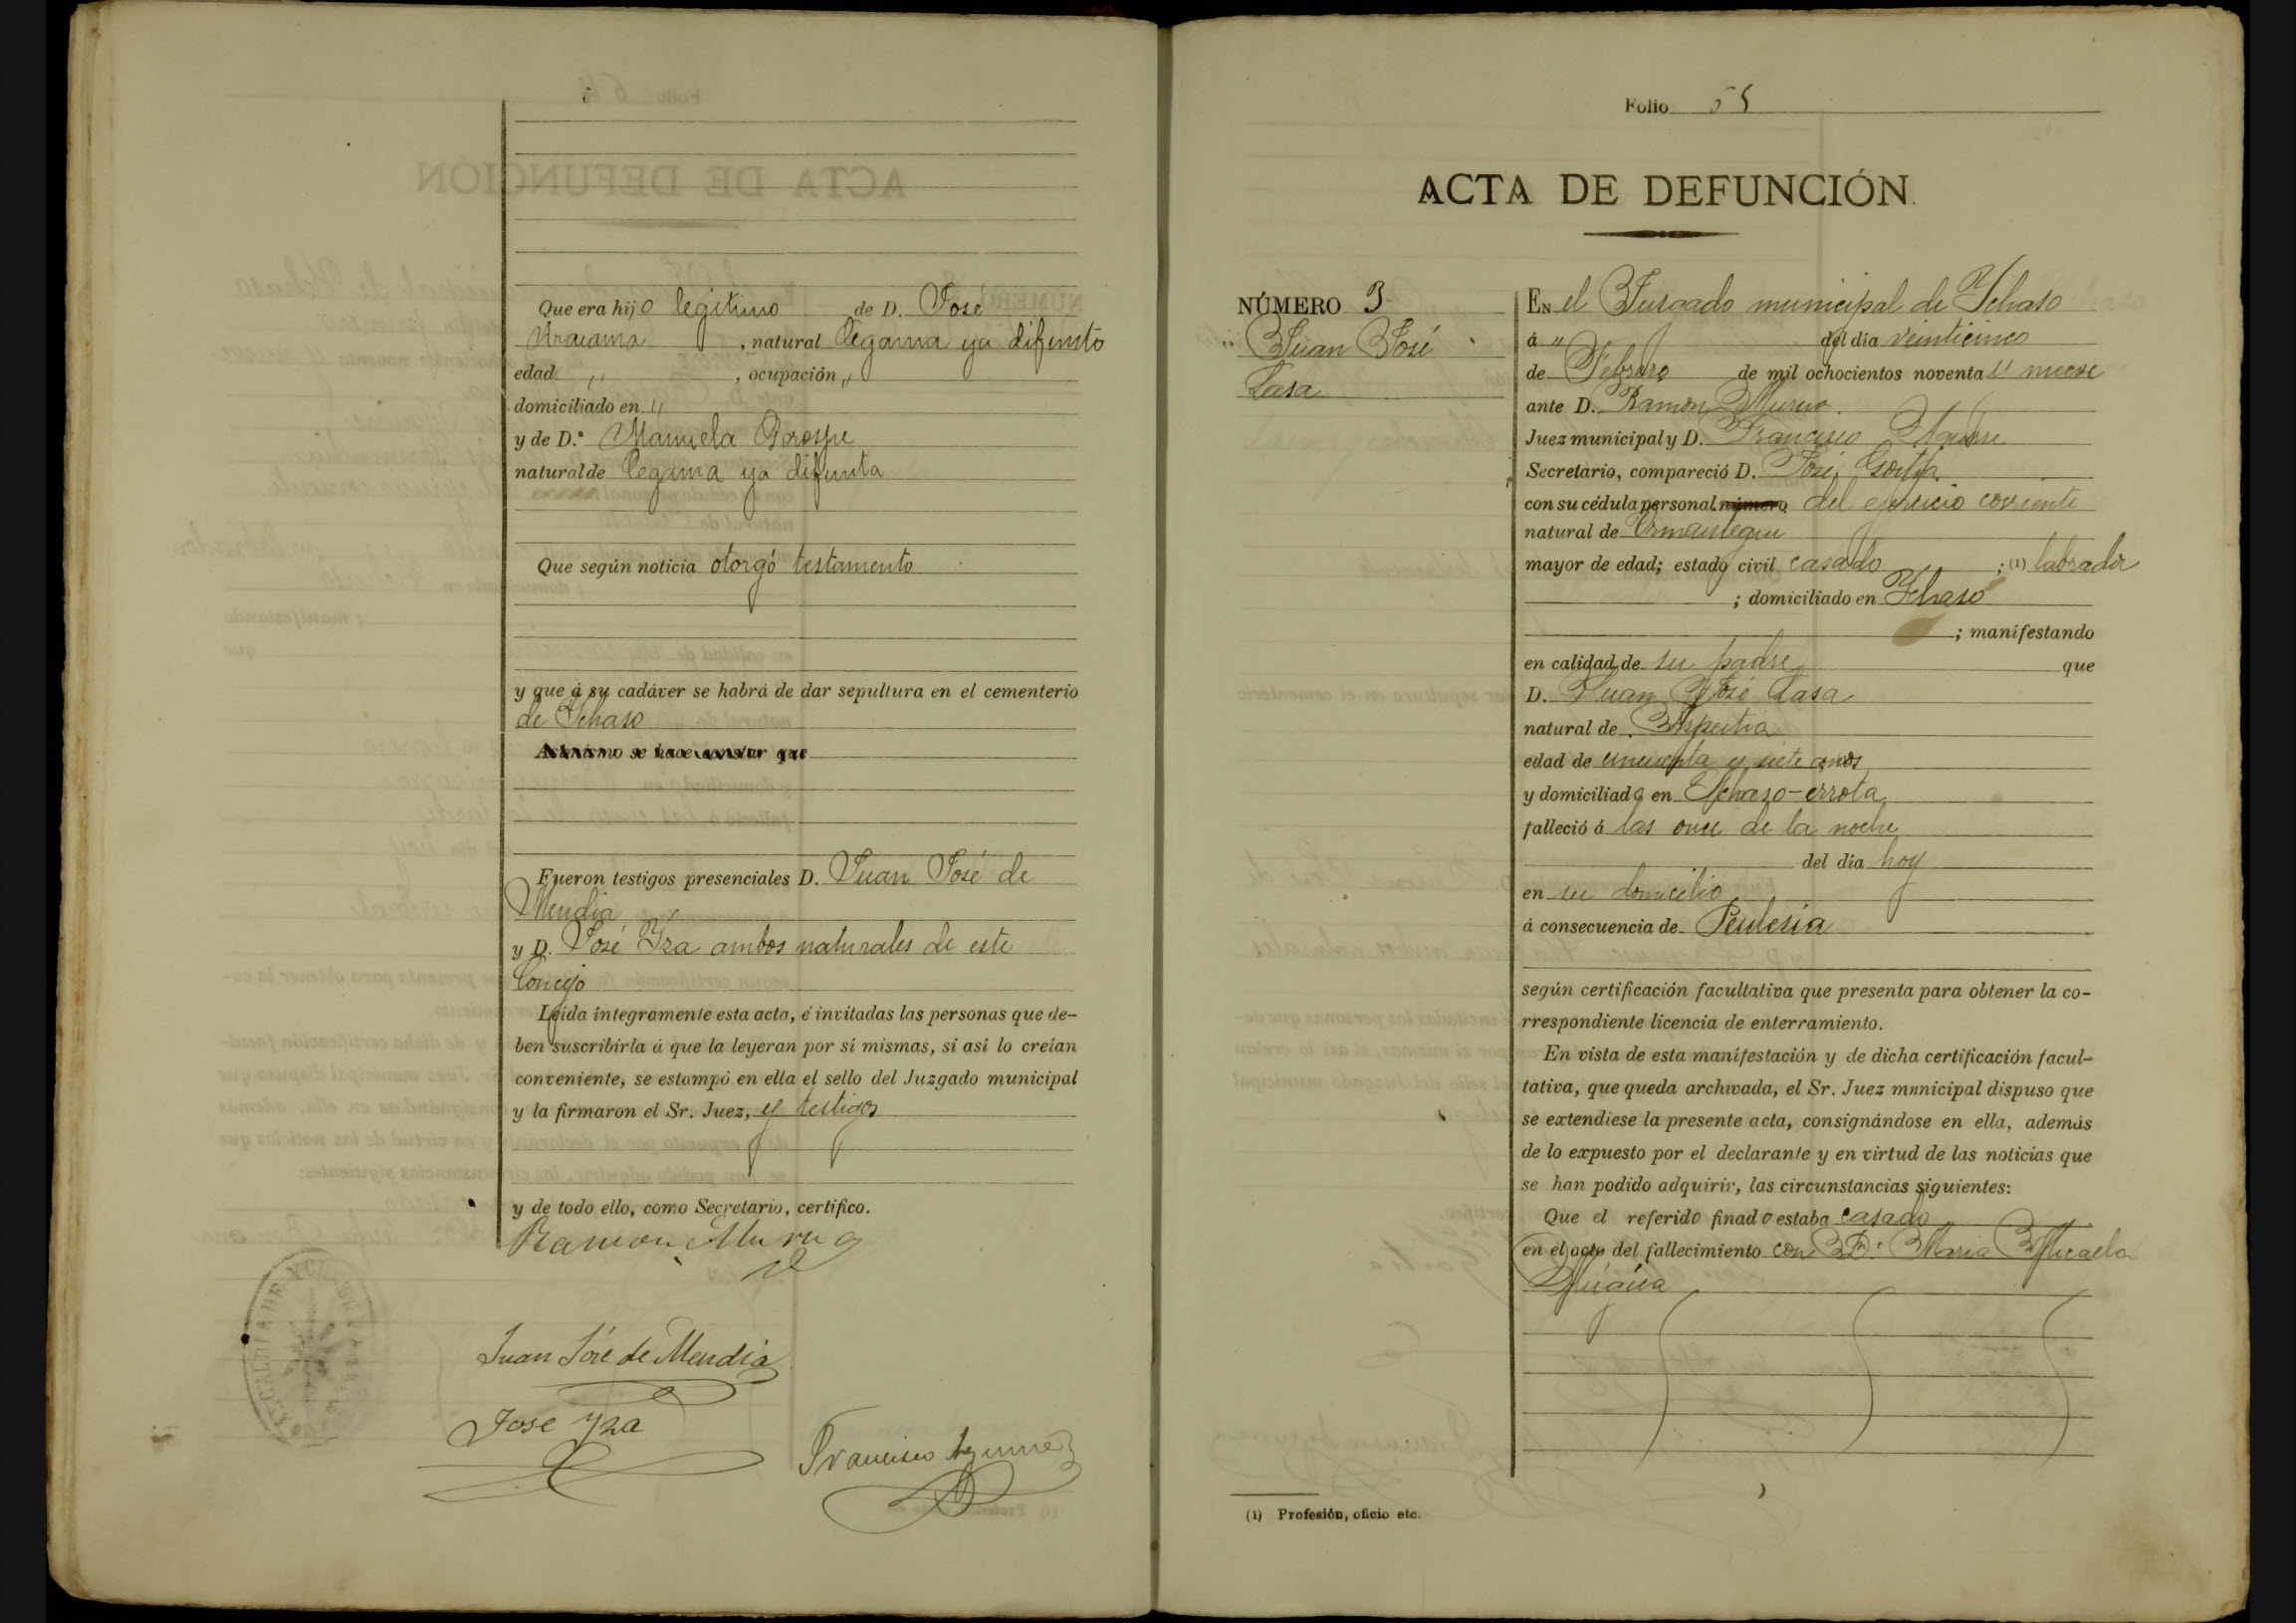 Que era hijo legítimo de D. José
, natural Cegama ya difunto
edad " , ocupación "
domiciliado en "
y de D.ª Manuela
natural de Cegama ya difunta
Que según noticia otorgó testamento
y que á su cadáver se habrá de dar sepultura en el cementerio
de Ychaso
Asimismo se hace constar que
Fueron testigos presenciales D. Juan José de
Mendia
y D. José Yza ambos naturales de este
Concejo
Leída íntegramente esta acta, é invitadas las personas que de-
ben suscribirla á que la leyeran por sí mismas, si así lo creían
conveniente, se estampó en ella el sello del Juzgado municipal
y la firmaron el Sr. Juez, y testigos
y de todo ello, como Secretario, certifico.
Ramon Murua
ALCALDIA DE YCHASO
Juan José de Mendia
Jose Yza
Francisco Aguirre
Folio 55
ACTA DE DEFUNCIÓN.
NÚMERO 3
Juan José
Lasa
EN el Jusgado municipal de Ychaso
á " del día veinticinco
de Febrero de mil ochocientos noventa y nueve
ante D. Ramón Murua.
Juez municipal y D. Francisco Aguirre
Secretario, compareció D. José Gorta
con su cédula personal número del ejercicio corriente
natural de Ormaiztegui
mayor de edad; estado civil casado ; (1) labrador
; domiciliado en Ychaso
; manifestando
en calidad de su padre que
D. Juan José Lasa
natural de Azpeitia
edad de cincuenta y siete años
y domiciliado en Ychaso-errota
falleció á las once de la noche
del día hoy
en su domicilio
á consecuencia de
según certificación facultativa que presenta para obtener la co-
rrespondiente licencia de enterramiento.
En vista de esta manifestación y de dicha certificación facul-
tativa, que queda archivada, el Sr. Juez mnnicipal dispuso que
se extendiese la presente acta, consignándose en ella, además
de lo expuesto por el declarante y en virtud de las noticias que
se han podido adquirir, las circunstancias siguientes:
Que el referido finado estaba casado
en el acto del fallecimiento con D.ª Maria Micaela
Múgica
(1) Profesión, oficio etc.